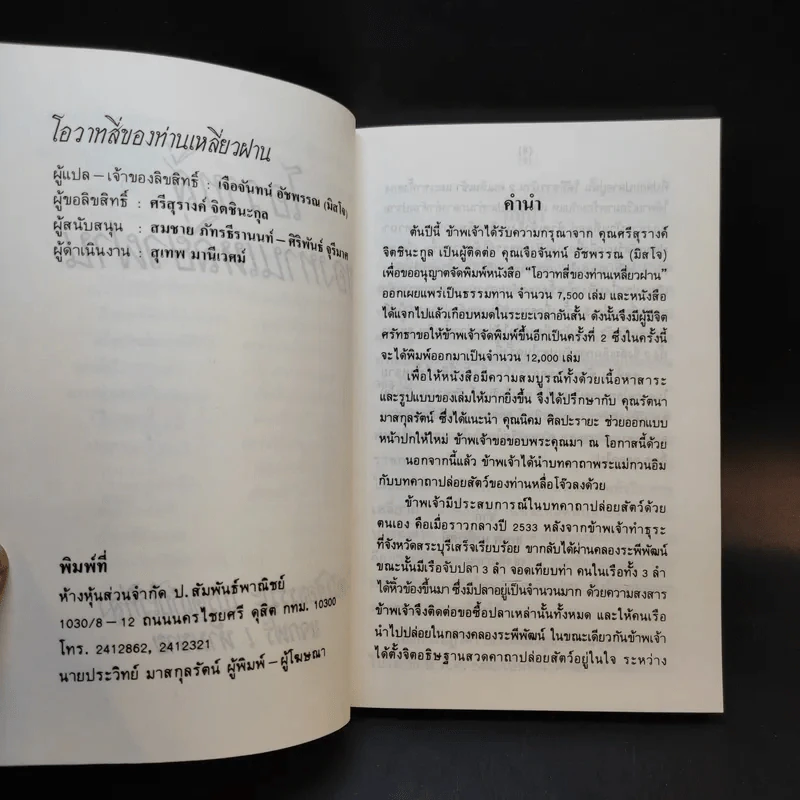 โอวาทสี่ของท่านเหลี่ยวฝาน
ผู้แปล–เจ้าของลิขสิทธิ์ : เจือจันทน์ อัชพรรณ (มิสโจ)
ผู้ขอลิขสิทธิ์ : ศรีสุรางค์ จิตชินะกุล
ผู้สนับสนุน : สมชาย ภัทรธีรานนท์–ศิริพันธ์ จุรีมาศ
ผู้ดำเนินงาน : สุเทพ มานีเวศม์
พิมพ์ที่
ห้างหุ้นส่วนจำกัด ป. สัมพันธ์พาณิชย์
1030/8–12 ถนนนครไชยศรี ดุสิต กทม. 10300
โทร. 2412862, 2412321
นายประวิทย์ มาสกุลรัตน์ ผู้พิมพ์–ผู้โฆษณา
คำนำ
ต้นปีนี้ ข้าพเจ้าได้รับความกรุณาจาก คุณศรีสุรางค์
จิตชินะกูล เป็นผู้ติดต่อ คุณเจือจันทน์ อัชพรรณ (มิสโจ)
เพื่อขออนุญาตจัดพิมพ์หนังสือ “โอวาทสี่ของท่านเหลี่ยวฝาน”
ออกเผยแพร่เป็นธรรมทาน จำนวน 7,500 เล่ม และหนังสือ
ได้แจกไปแล้วเกือบหมดในระยะเวลาอันสั้น ดังนั้นจึงมีผู้มีจิต
ศรัทธาขอให้ข้าพเจ้าจัดพิมพ์ขึ้นอีกเป็นครั้งที่ 2 ซึ่งในครั้งนี้
จะได้พิมพ์ออกมาเป็นจำนวน 12,000 เล่ม
เพื่อให้หนังสือมีความสมบูรณ์ทั้งด้วยเนื้อหาสาระ
และรูปแบบของเล่มให้มากยิ่งขึ้น จึงได้ปรึกษากับ คุณรัตนา
มาสกุลรัตน์ ซึ่งได้แนะนำ คุณนิคม ศิลปะรายะ ช่วยออกแบบ
หน้าปกให้ใหม่ ข้าพเจ้าขอขอบพระคุณมา ณ โอกาสนี้ด้วย
นอกจากนี้แล้ว ข้าพเจ้าได้นำบทคาถาพระแม่กวนอิม
กับบทคาถาปล่อยสัตว์ของท่านหลื่อโจ๊วลงด้วย
ข้าพเจ้ามีประสบการณ์ในบทคาถาปล่อยสัตว์ด้วย
ตนเอง คือเมื่อราวกลางปี 2533 หลังจากข้าพเจ้าทำธุระ
ที่จังหวัดสระบุรีเสร็จเรียบร้อย ขากลับได้ผ่านคลองระพีพัฒน์
ขณะนั้นมีเรือจับปลา 3 ลำ จอดเทียบท่า คนในเรือทั้ง 3 ลำ
ได้หิ้วข้องขึ้นมา ซึ่งมีปลาอยู่เป็นจำนวนมาก ด้วยความสงสาร
ข้าพเจ้าจึงติดต่อขอซื้อปลาเหล่านั้นทั้งหมด และให้คนเรือ
นำไปปล่อยในกลางคลองระพีพัฒน์ ในขณะเดียวกันข้าพเจ้า
ได้ตั้งจิตอธิษฐานสวดคาถาปล่อยสัตว์อยู่ในใจ ระหว่าง